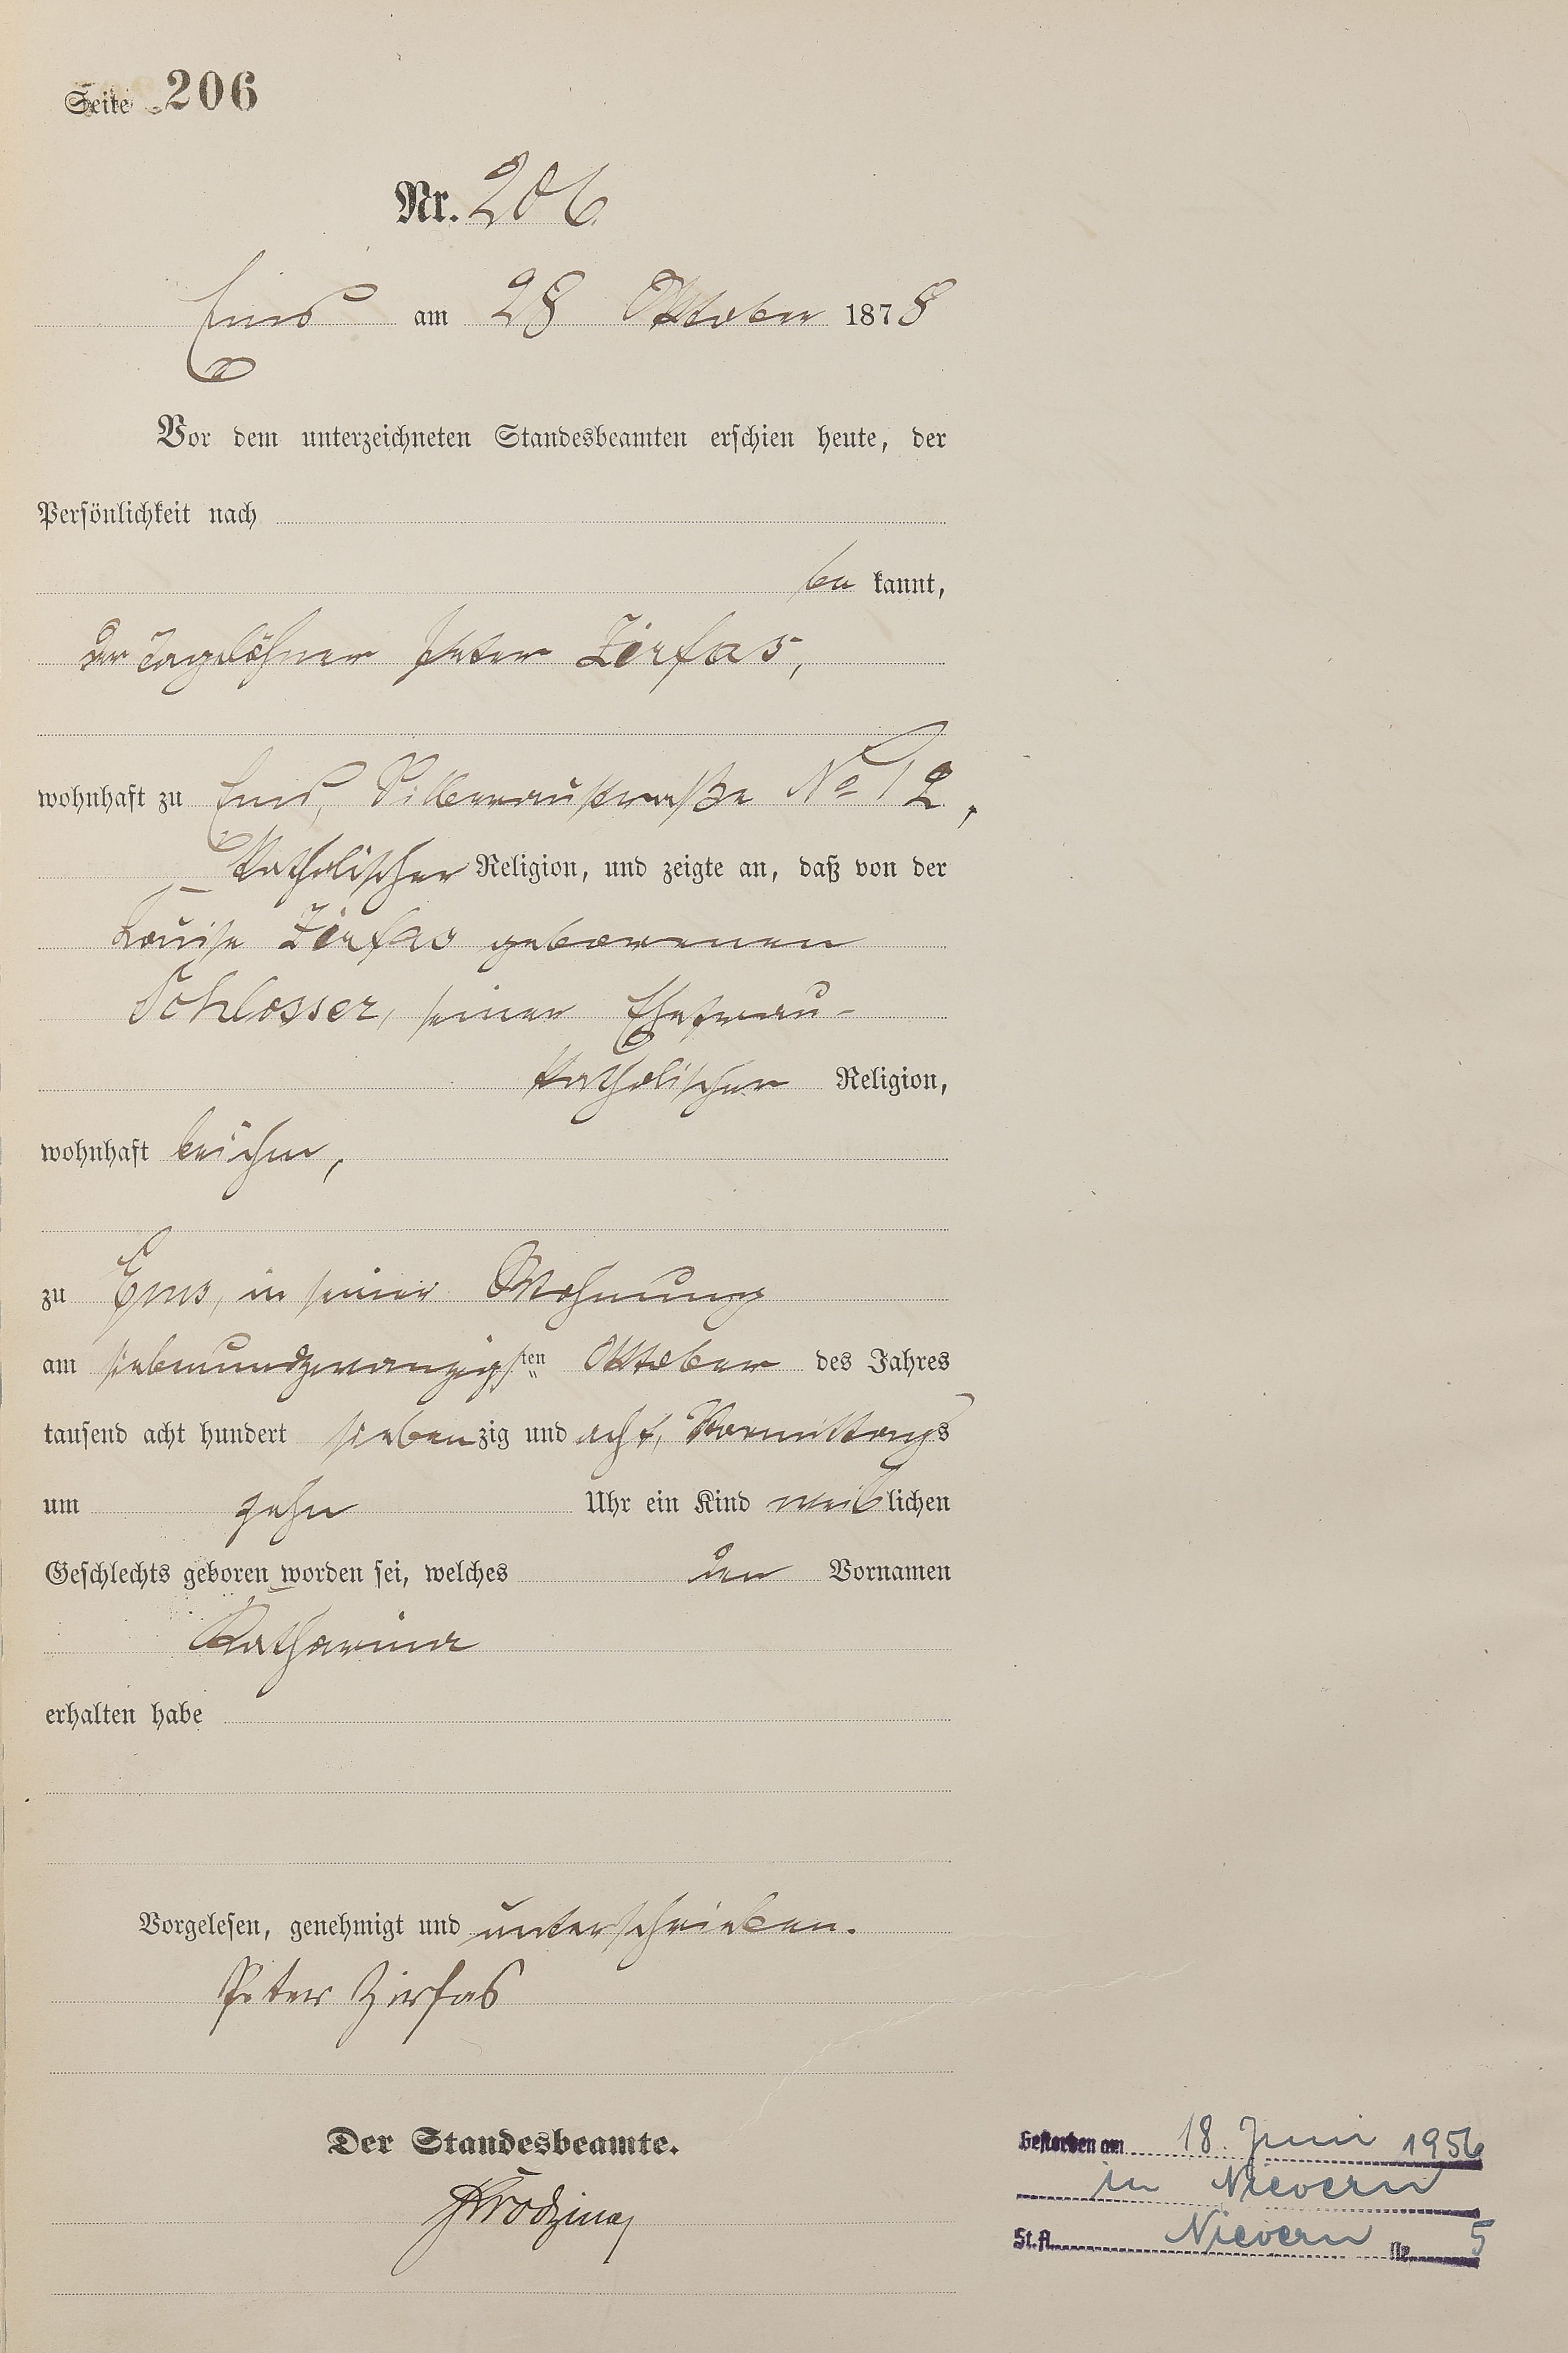 Seite 206
Nr. 206
Ems am 28 Oktober 1878
Vor dem unterzeichneten Standesbeamten erschien heute, der
Persönlichkeit nach
be kannt,
der Tagelöhner Peter Zirfas,
wohnhaft zu Ems, Silberaustraße No 12,
katholischer Religion, und zeigte an, daß von der
Louise Zirfas geborenen
Schlosser, seiner Ehefrau-
katholischer Religion,
wohnhaft bei ihm,
zu Ems, in seiner Wohnung
am siebenundzwanzigsten Oktober des Jahres
tausend acht hundert siebenzig und acht, Vormittags
um zehn Uhr ein Kind weiblichen
Geschlechts geboren worden sei, welches den Vornamen
Katharina
erhalten habe
Vorgelesen, genehmigt und unterschrieben.
Peter Zirfas
Der Standesbeamte.
Gestorben am 18. Juni 1956
in Nievern
St.A. Nievern Nr. 5